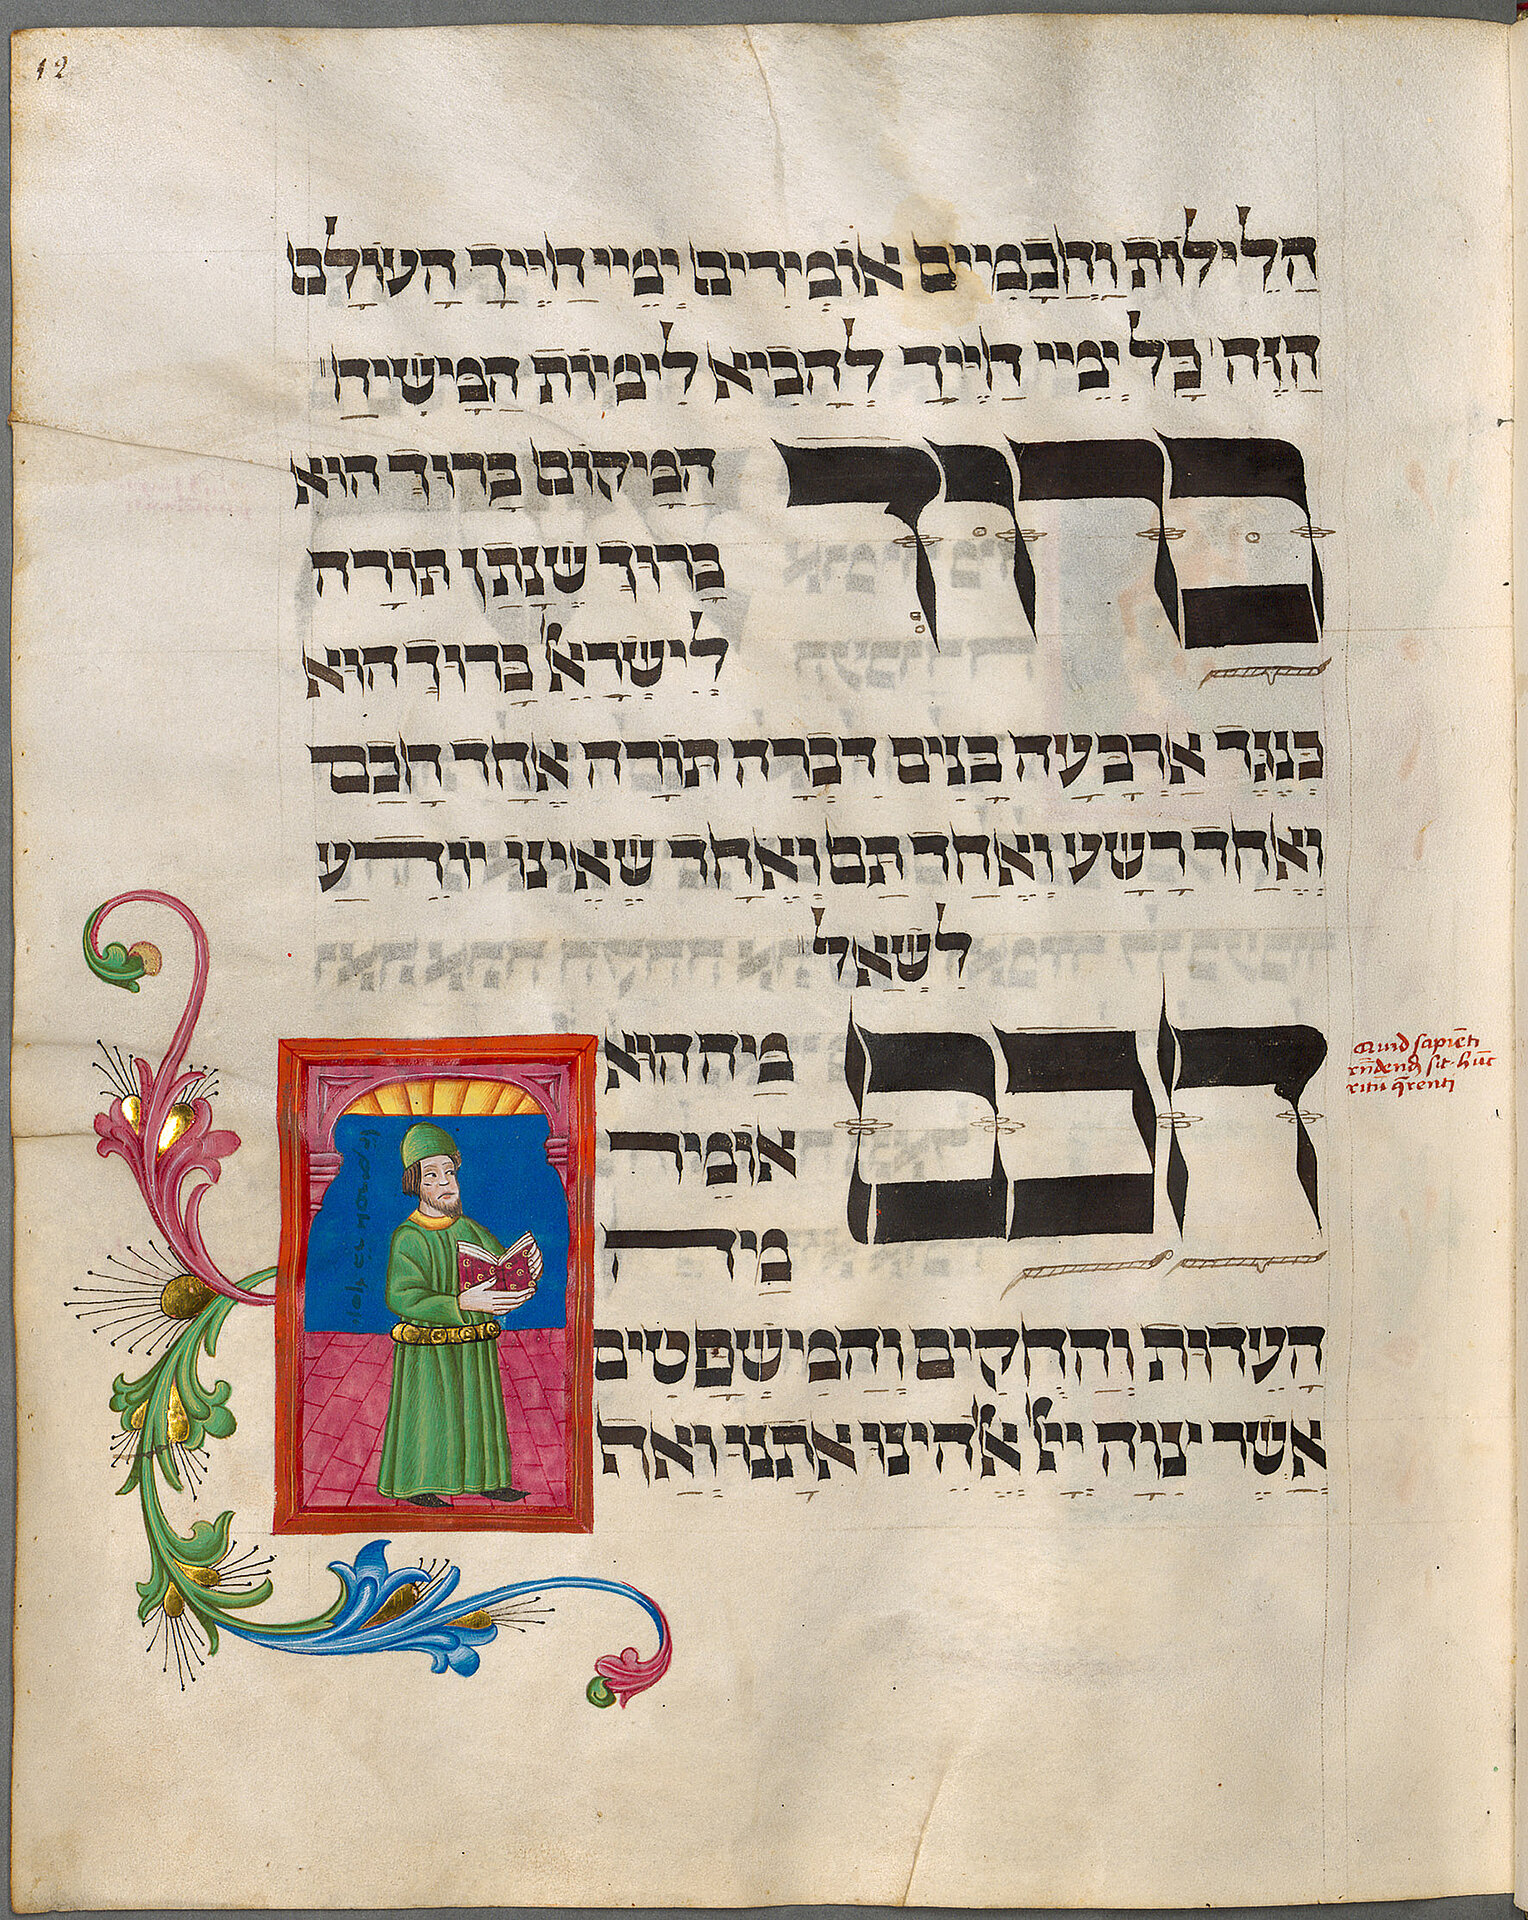 12
הַלֵּילוֹת וַחֲכָמִים אוֹמְירִים יְמֵיי חַיֶּיךָ הָעוֹלָם
הַזֶּה כָּל יְמֵיי חַיֶּיךָ לְהָבִיא לִימוֹת הַמָּשִׁיחַ
בָּרוּךְ
הַמָּקוֹם בָּרוּךְ הוּא
בָּרוּךְ שֶׁנָּתַן תּוֹרָה
לְיִשְׂרָאֵ' בָּרוּךְ הוּא
כְּנֶגֶד אַרְבָּעָה בָנִים דִּבְּרָה תּוֹרָה אֶחָד חָכָם
וְאֶחָד רָשָׁע וְאֶחָד תָּם וְאֶחָד שֶׁאֵינוֹ יוֹדֵעַ
לִשְׁאַל
חָכָם
מַיה הוּא
אוֹמֵיר
מַיה
הָעֵדוּת וְהַחֻקִים וְהַמִישְׁפָּטִים
אֲשֶׁר יצוה יי' אֱלֹהֵינוּ אֶתְכֶם וְאַתָּה
Quid sapiēti
sit hūc
ritū q̄renti